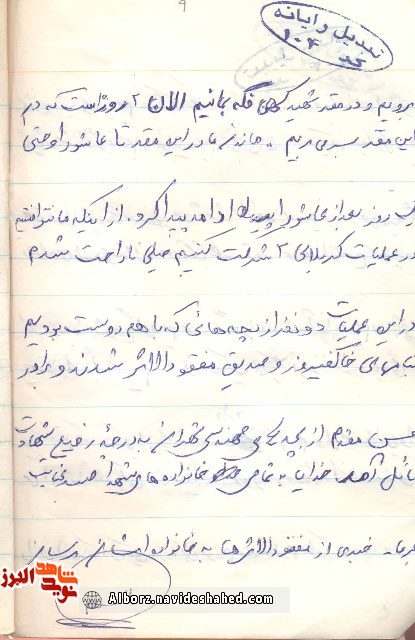 ۹
تبدیل و رایانه
برویم و در مقر شهید گله بمانیم الان ۲ روز است که در
این مقر بسر می‌بریم . ماندن ما در این مقر تا عاشورا و حتی
یک روز بعد از عاشورا ادامه پیدا کرد. از اینکه ما نتوانستیم
در عملیات کربلای ۲ شرکت کنیم خیلی ناراحت شدم
در این عملیات دو نفر از بچه‌هائی که با هم دوست بودیم
بنامهای خاکفیروز و صدیق مفقودالاثر شدند و برادر
حسن مقدم از بچه های مهندسی تهران به درجهٔ رفیع شهادت
نائل آمد. خدایا به تمامی خانواده های شهدا صبر عنایت
بفرما. خبری از مفقودالاثرها به خانواده ایشان برسان
نوید شاهد البرز
Alborz.navideshahed.com